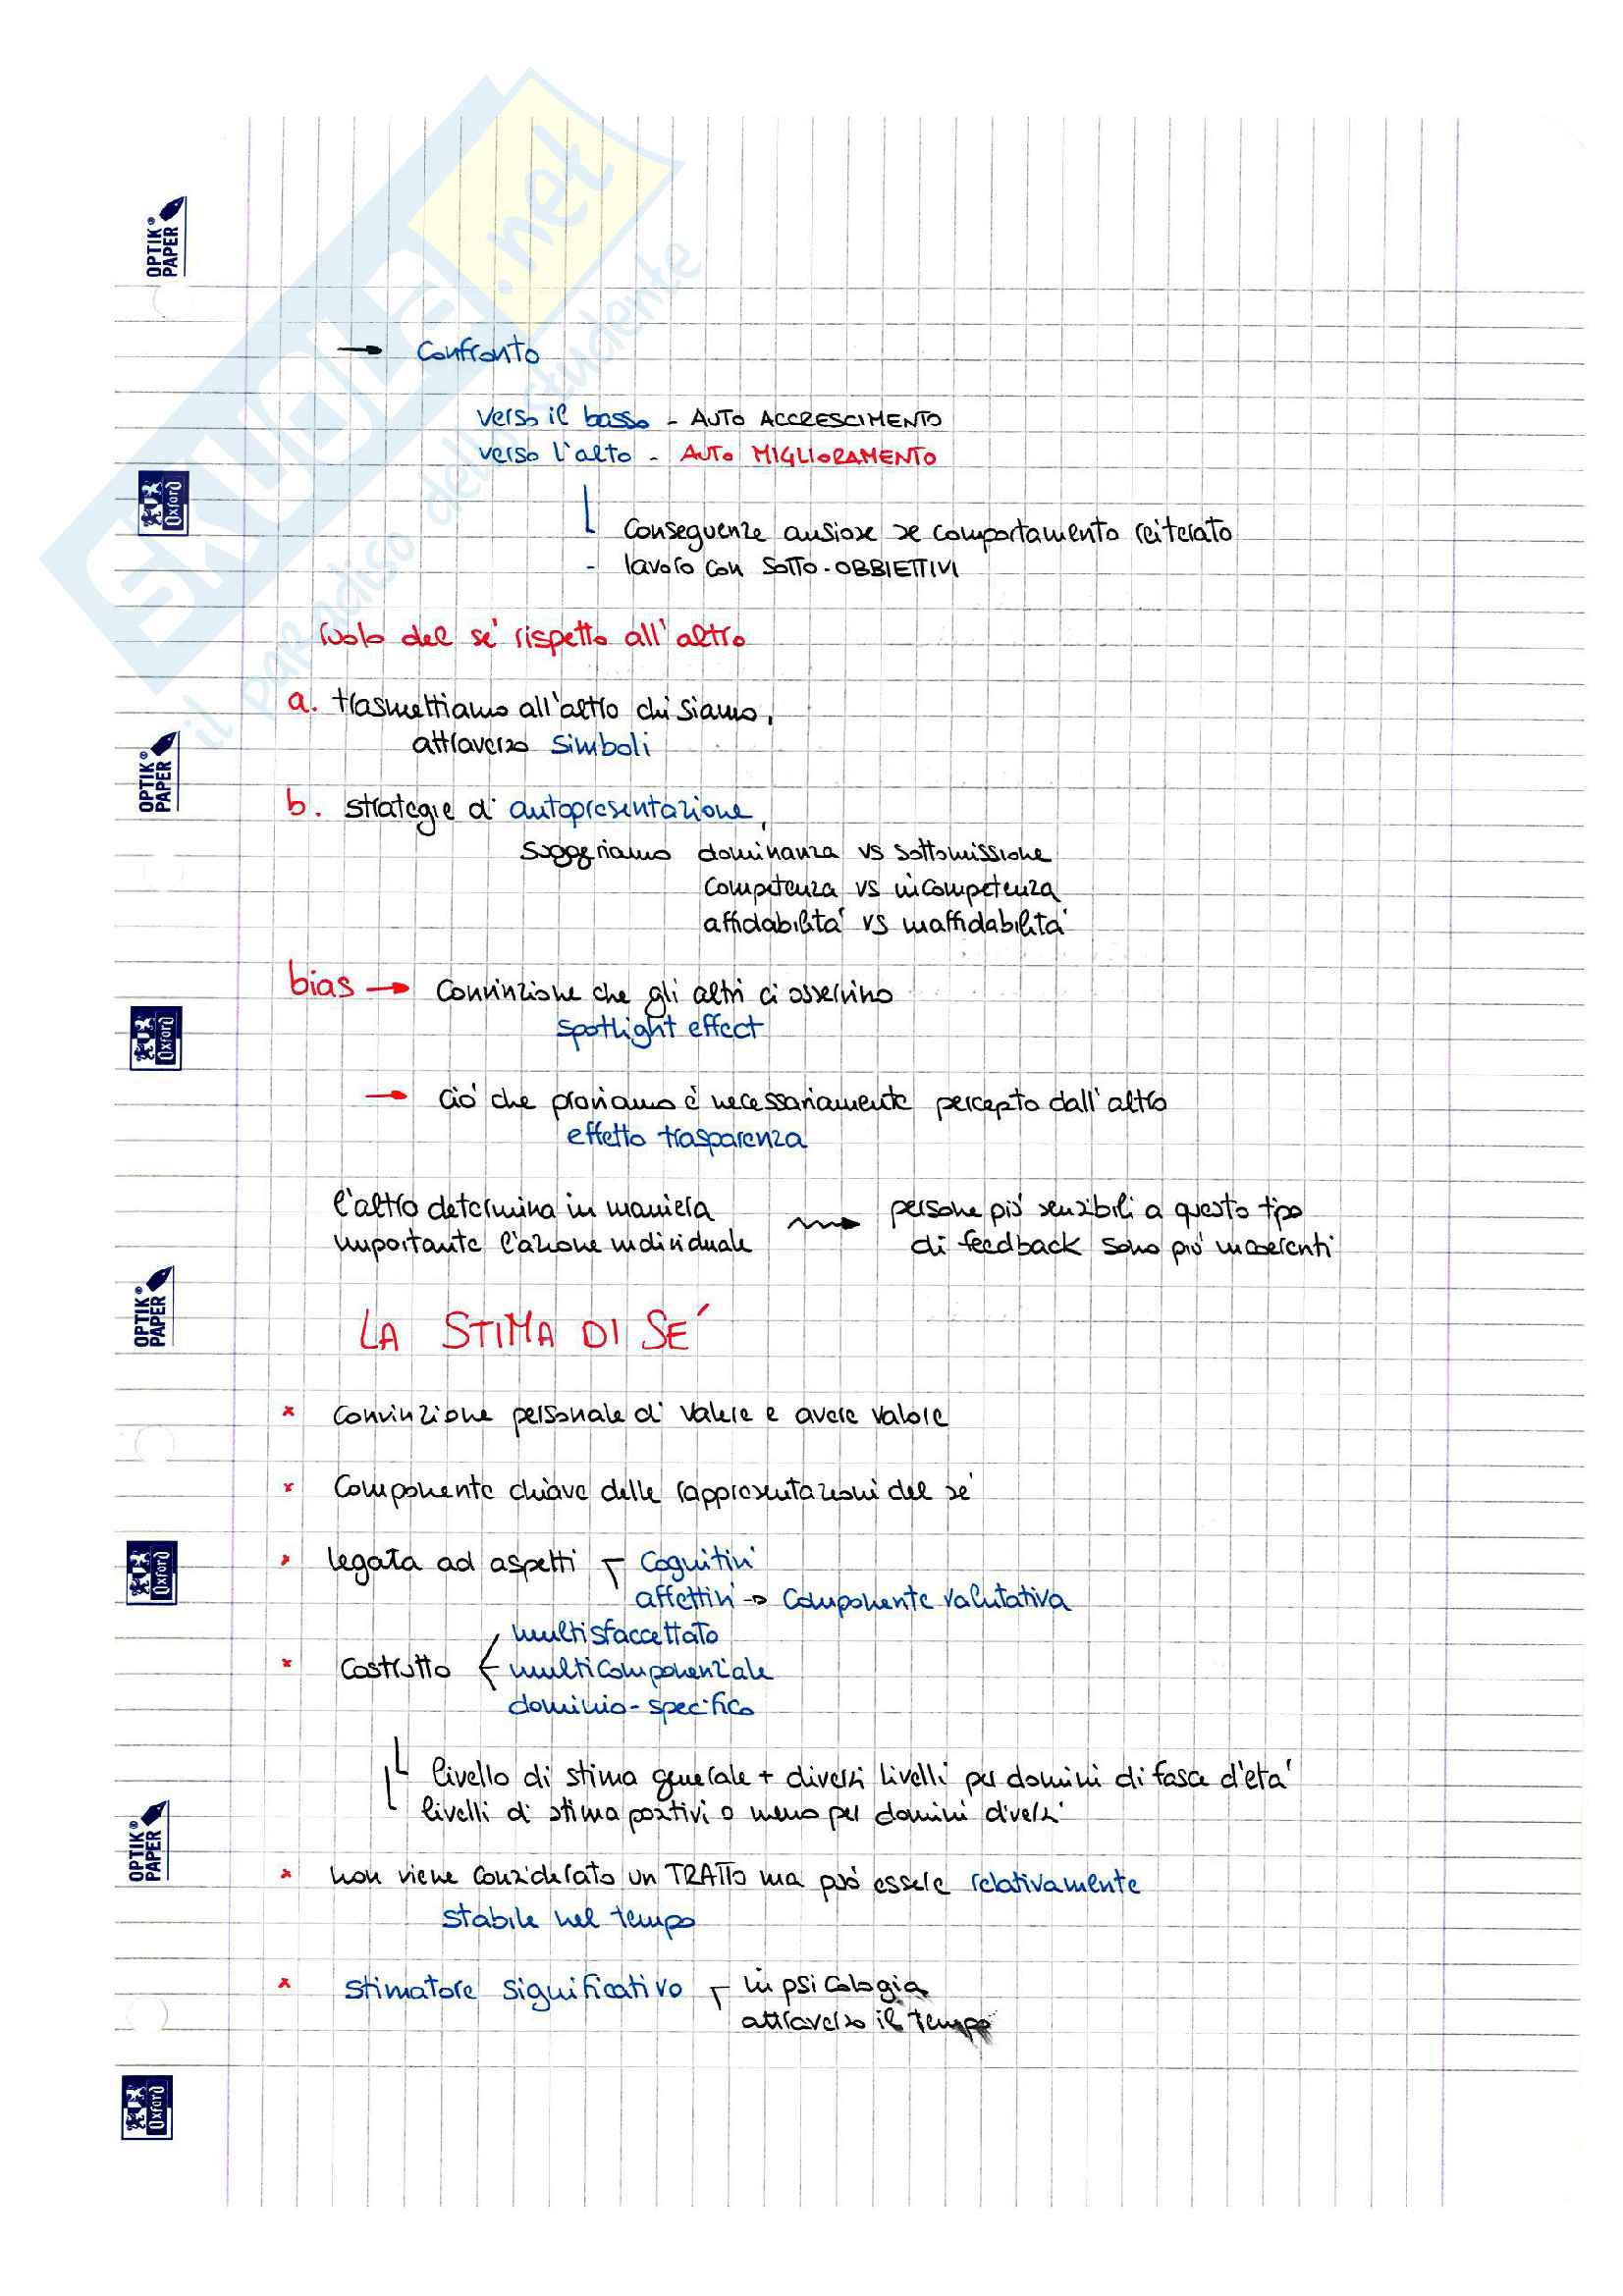 SKUOLA.net
il paradiso dello studente
OPTIK® PAPER
Oxford
OPTIK® PAPER
Oxford
OPTIK® PAPER
Oxford
OPTIK® PAPER
Oxford
→ Confronto
verso il basso - AUTO ACCRESCIMENTO
verso l'alto - AUTO MIGLIORAMENTO
Conseguenze ansiose se comportamento reiterato
- lavoro con SOTTO-OBBIETTIVI
ruolo del sé rispetto all'altro
a. trasmettiamo all'altro chi siamo,
attraverso simboli
b. strategie di autopresentazione,
suggeriamo dominanza vs sottomissione
competenza vs incompetenza
affidabilità vs inaffidabilità
bias → Convinzione che gli altri ci osservino
spotlight effect
→ ciò che proviamo è necessariamente percepto dall'altro
effetto trasparenza
l'altro determina in maniera → persone più sensibili a questo tipo
importante l'azione individuale di feedback sono più incoerenti
LA STIMA DI SÉ
x convinzione personale di valere e avere valore
x Componente chiave delle rappresentazioni del sé
x legata ad aspetti cognitivi
affettivi → componente valutativa
multisfaccettato
x Costrutto multicomponenziale
dominio-specifico
livello di stima generale + diversi livelli per domini di fasce d'età
livelli di stima positivi o meno per domini diversi
x non viene considerato un TRATTO ma può essere relativamente
stabile nel tempo
x stimatore significativo in psicologia
attraverso il tempo